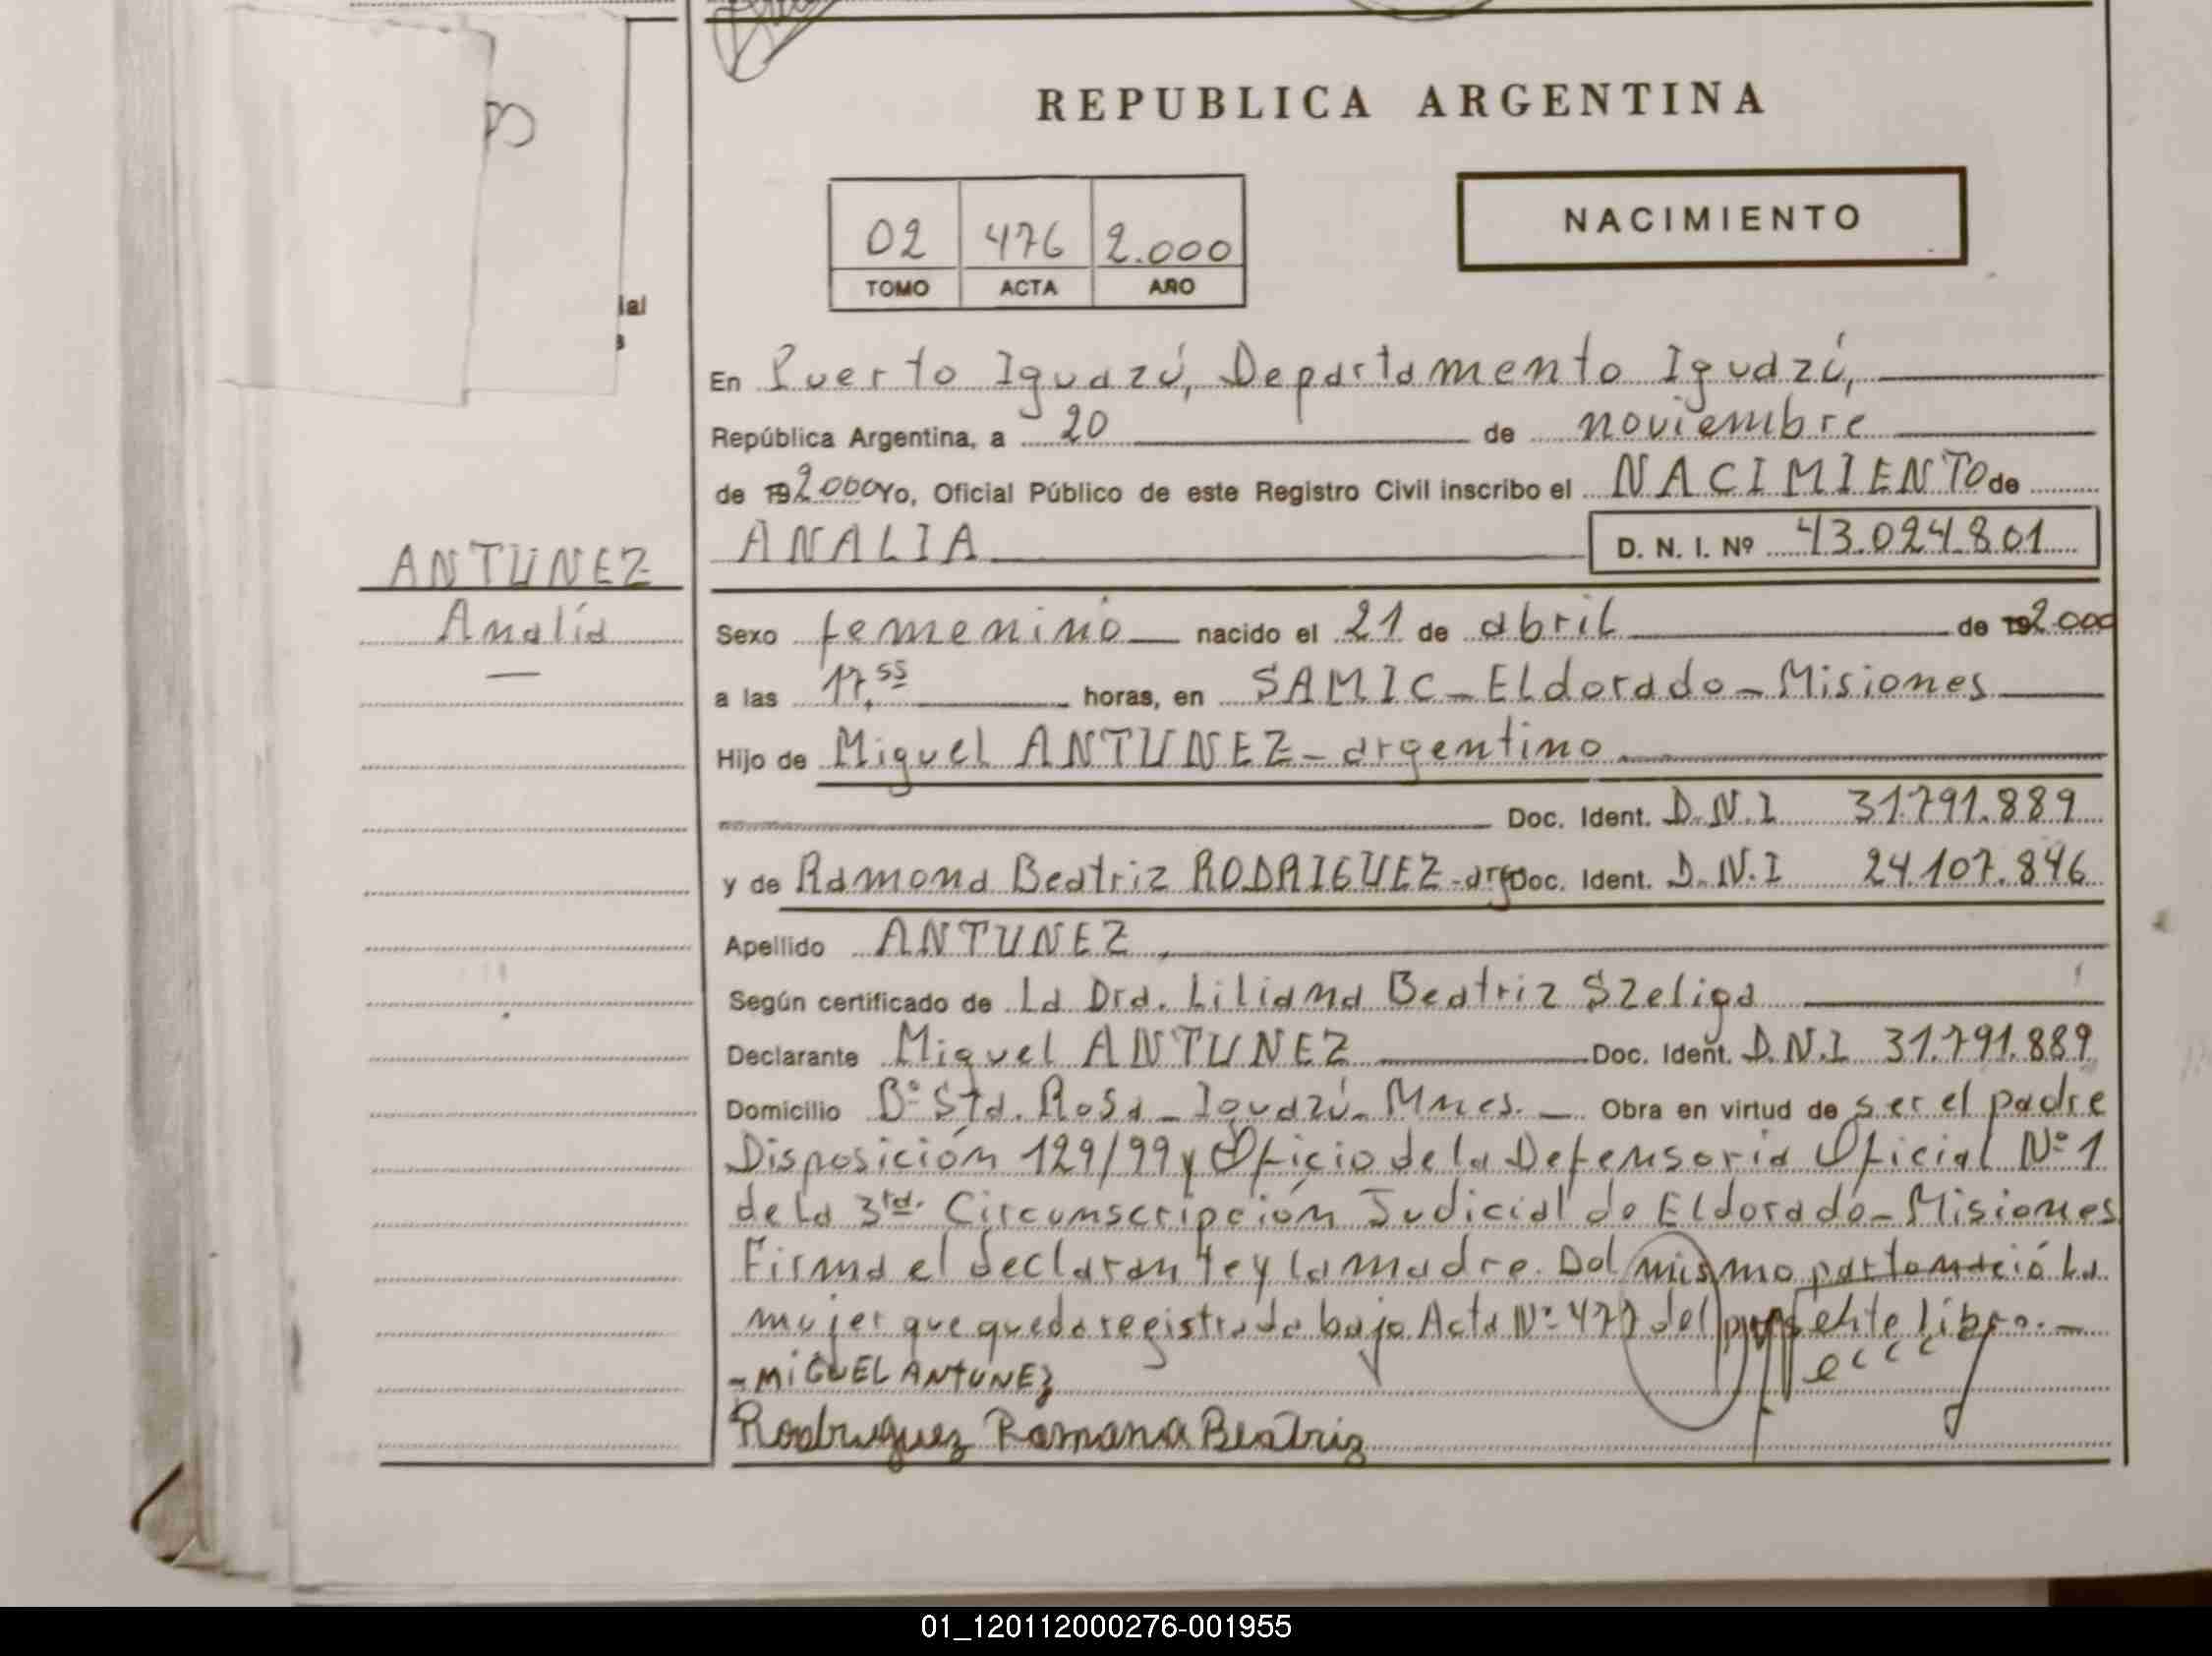 REPUBLICA ARGENTINA
02 476 2.000
TOMO ACTA AÑO
NACIMIENTO
En Puerto Iguazú, Departamento Iguazú,
República Argentina, a 20 de noviembre
de 192000 Yo, Oficial Público de este Registro Civil inscribo el NACIMIENTO de
ANALIA D. N. I. Nº 43.024.801
ANTUNEZ
Analía
Sexo femenino nacido el 21 de abril de 192000
a las 17,55 horas, en SAMIC - Eldorado - Misiones
Hijo de Miguel ANTUNEZ - argentino
Doc. Ident. D.N.I 31.791.889
y de Ramona Beatriz RODRIGUEZ - arg Doc. Ident. D.N.I 24.107.846
Apellido ANTUNEZ
Según certificado de La Dra. Liliana Beatriz Szeliga
Declarante Miguel ANTUNEZ Doc. Ident. D.N.I 31.791.889
Domicilio Bº Sta. Rosa - Iguazú - Mnes. Obra en virtud de ser el padre
Disposición 129/99 y Oficio de la Defensoria Oficial Nº 1
de la 3ra. Circunscripción Judicial de Eldorado - Misiones
Firma el declarante y la madre. Del mismo parto nació la
mujer que queda registrada bajo Acta Nº 477 del presente libro. -
- MIGUEL ANTUNEZ
Rodriguez Ramona Beatriz
01_120112000276-001955